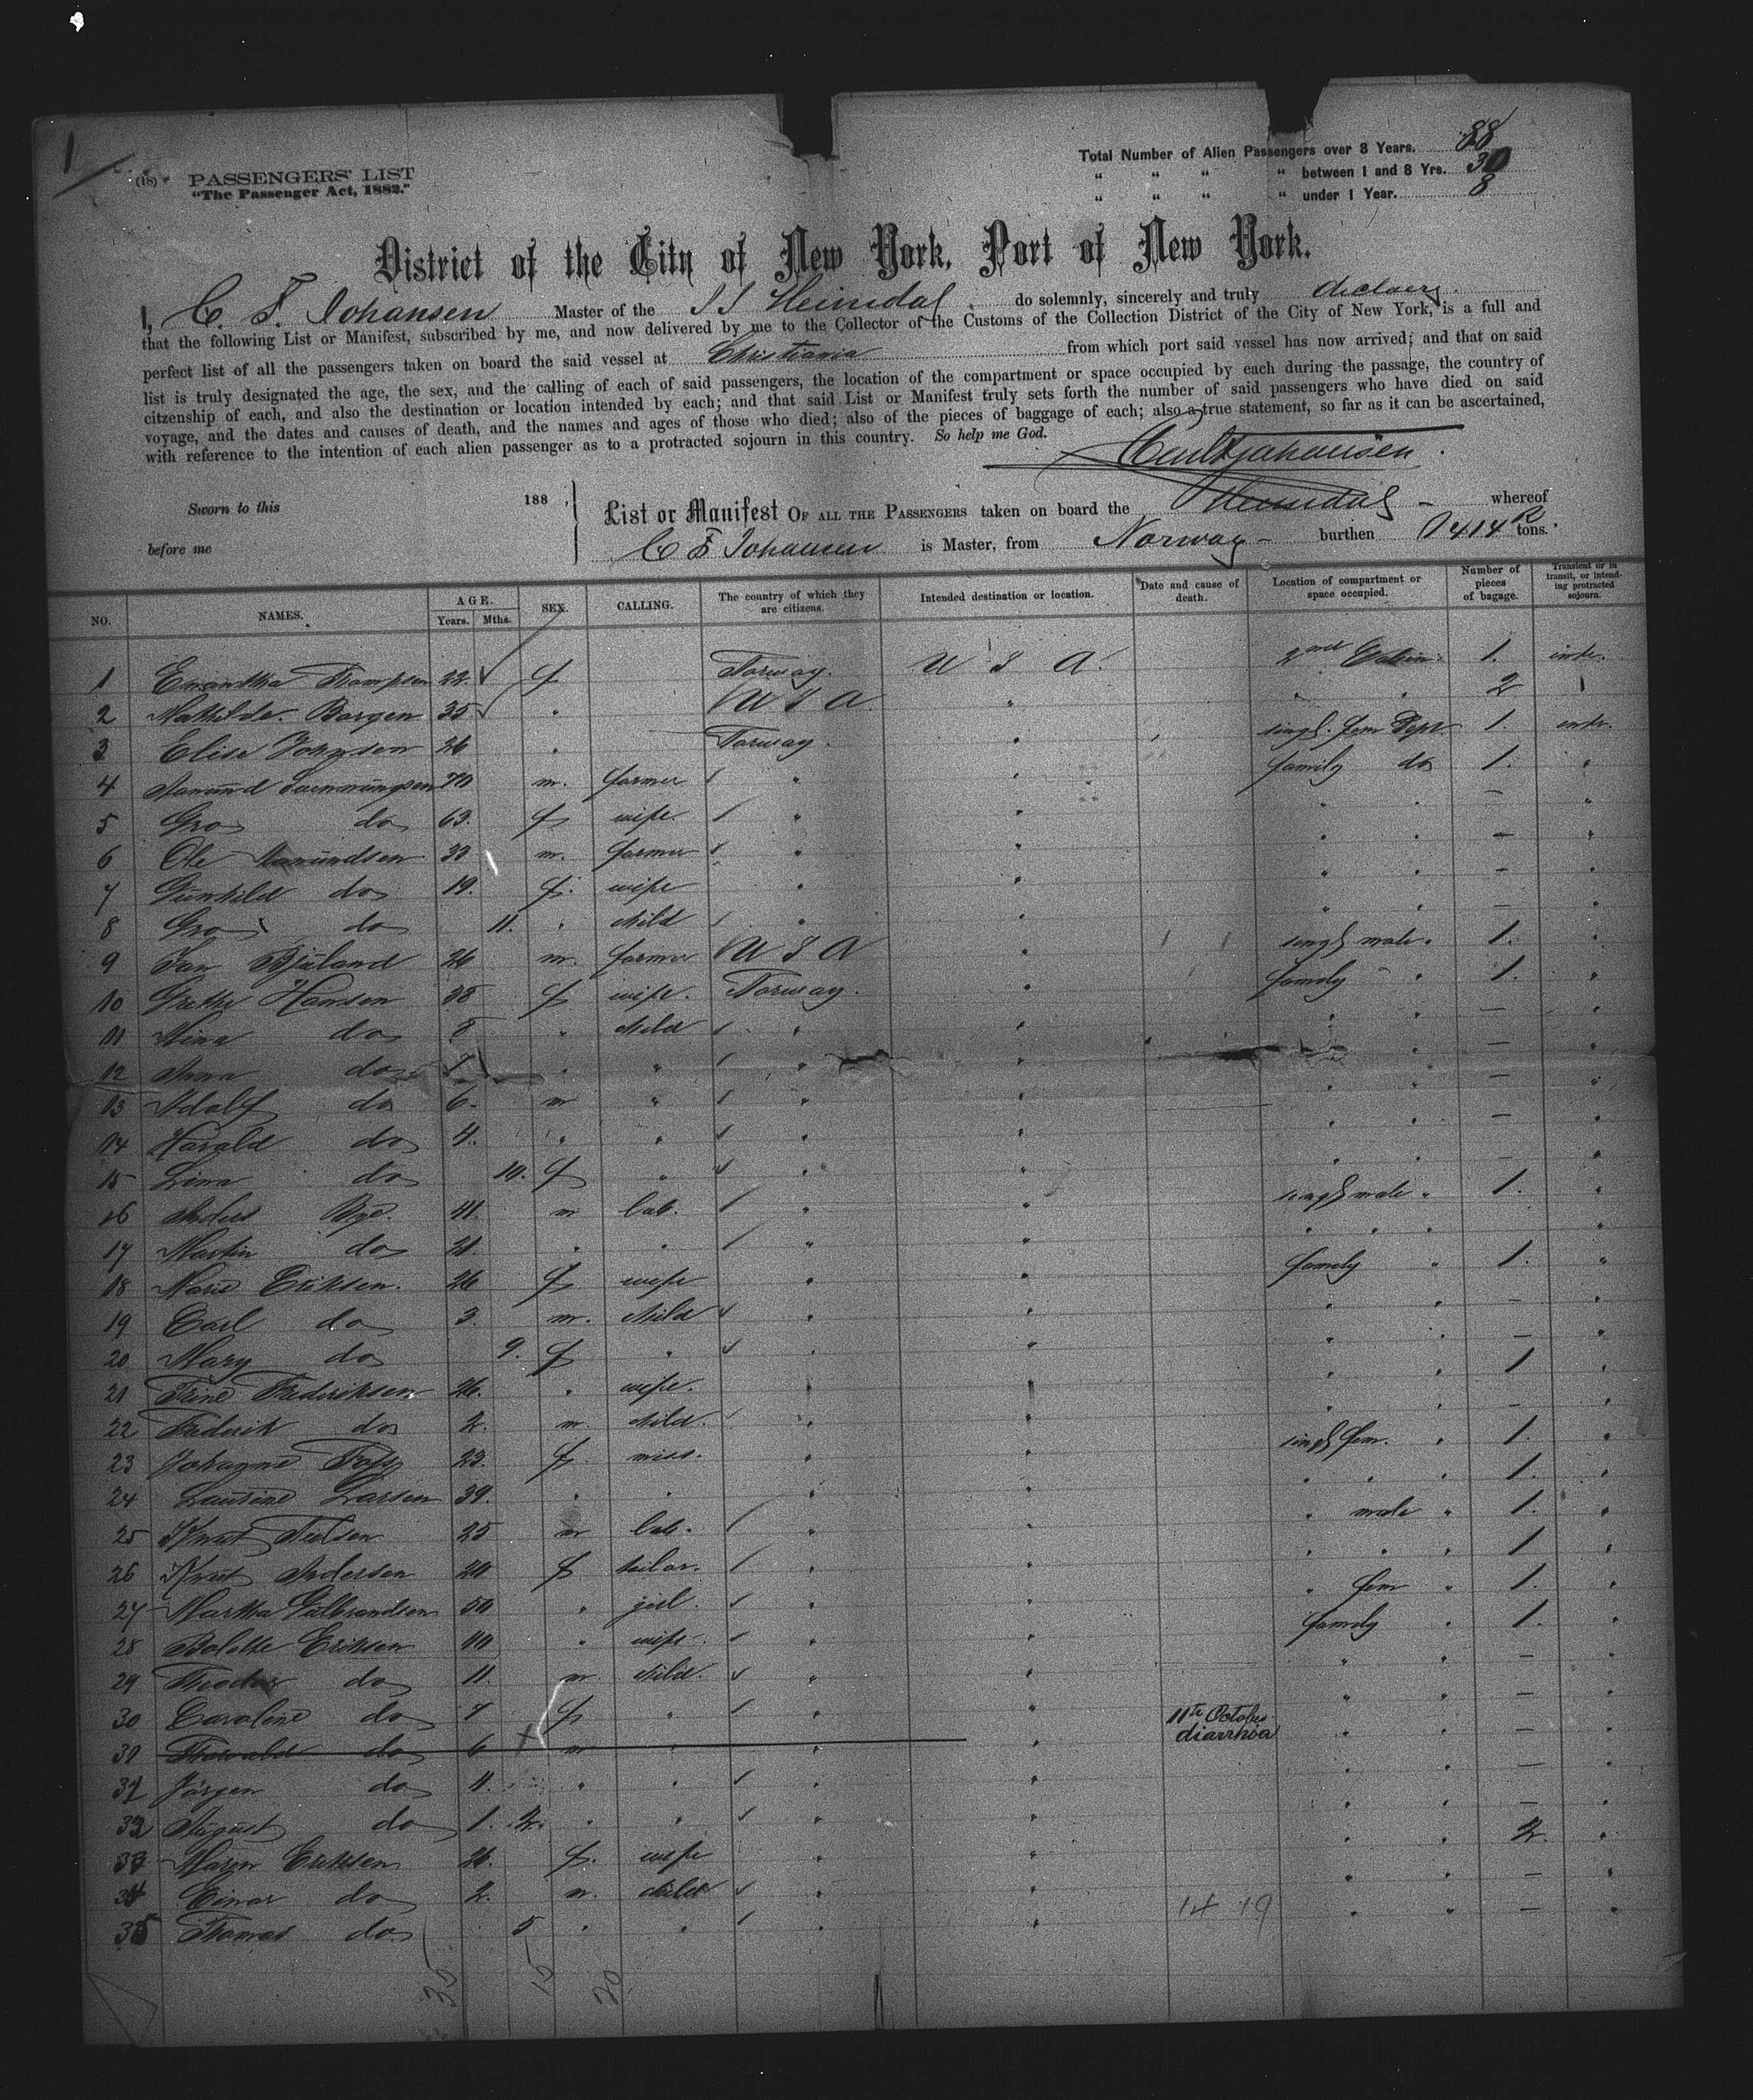 1
(18) PASSENGERS' LIST
"The Passenger Act, 1882."
Total Number of Alien Passengers over 8 Years. 88
" " " " between 1 and 8 Yrs. 30
" " " " under 1 Year. 8
District of the City of New York, Port of New York.
I, C. F. Johansen Master of the SS Heimdal do solemnly, sincerely and truly declare
that the following List or Manifest, subscribed by me, and now delivered by me to the Collector of the Customs of the Collection District of the City of New York, is a full and
perfect list of all the passengers taken on board the said vessel at Christiania from which port said vessel has now arrived; and that on said
list is truly designated the age, the sex, and the calling of each of said passengers, the location of the compartment or space occupied by each during the passage, the country of
citzenship of each, and also the destination or location intended by each; and that said List or Manifest truly sets forth the number of said passengers who have died on said
voyage, and the dates and causes of death, and the names and ages of those who died; also of the pieces of baggage of each; also a true statement, so far as it can be ascertained,
with reference to the intention of each alien passenger as to a protracted sojourn in this country. So help me God.
Carl F Johansen
Sworn to this 188 ,
before me
List or Manifest OF ALL THE PASSENGERS taken on board the Heimdal whereof
C F Johansen is Master, from Norway burthen 1414 tons.
NO. NAMES. AGE. Years. Mths. SEX. CALLING. The country of which they are citizens. Intended destination or location. Date and cause of death. Location of compartment or space occupied. Number of pieces of bagage. Transient or in transit, or intending protracted sojourn.
1 22 f Norway. U S A. 2nd 1.
2 Mathilde Borgen 35 " U S A " " " 2
3 Elise Johnsen 26 " Norway. " singl. fem Dept 1.
4 70 m. farmer " " family do 1. "
5 Gro do 63. f wife " " " " – "
6 Ole Aamundsen 30 m. farmer " " " " – "
7 Gunhild do 19. f. wife " " " " – "
8 Gro do 11. " child " " " " – "
9 Jan Bjuland 26 m. farmer U S A " singl male " 1. "
10 Grethe Hansen 38 f wife. Norway. " family " 1. "
11 Mina do 8 " child " " " " – "
12 Anna do " " " " " " – "
13 Adolf do 6. m " " " " " – "
14 Harald do 4. " " " " " " – "
15 Lina do 10. f " " " " " – "
16 Anders Bye. 41. m lab. " " singl male " 1. "
17 Martin do 21. " " " " " " " "
18 Marie Eriksen. 26 f wife " " family " 1. "
19 Carl do 3. m. child " " " " – "
20 Mary do 9. f " " " " " – "
21 Trine Frederiksen 26. " wife. " " " " 1 "
22 Frederik do 2. m. child. " " " " – "
23 Johanne Foss 23. f. miss. " " singl fem. " 1. "
24 Laurine Larsen 39. " " " " " " " 1. "
25 Knut Nielsen 25 m lab. " " " male " 1. "
26 Knut Andersen 20 f tailor. " " " " " 1 "
27 Martha Gulbrandsen 50 " girl. " " " fem " 1. "
28 Bolette Eriksen 40 " wife. " " family " 1. "
29 Theodor do 11. m. child. " " " " – "
30 Caroline do 7 f " " " " " – "
31 Thorvald do 6 m " " " 11th October diarrhoia " " – "
31 Jörgen do 4. " " " " " " – "
32 August do 1. 2. " " " " " " – "
33 Maren Eriksen 26. f. wife " " " " 2. "
34 Einar do 2. m. child " " " " – "
35 Thomas do. 5 " " " " " " – "
14 19
35 15 20